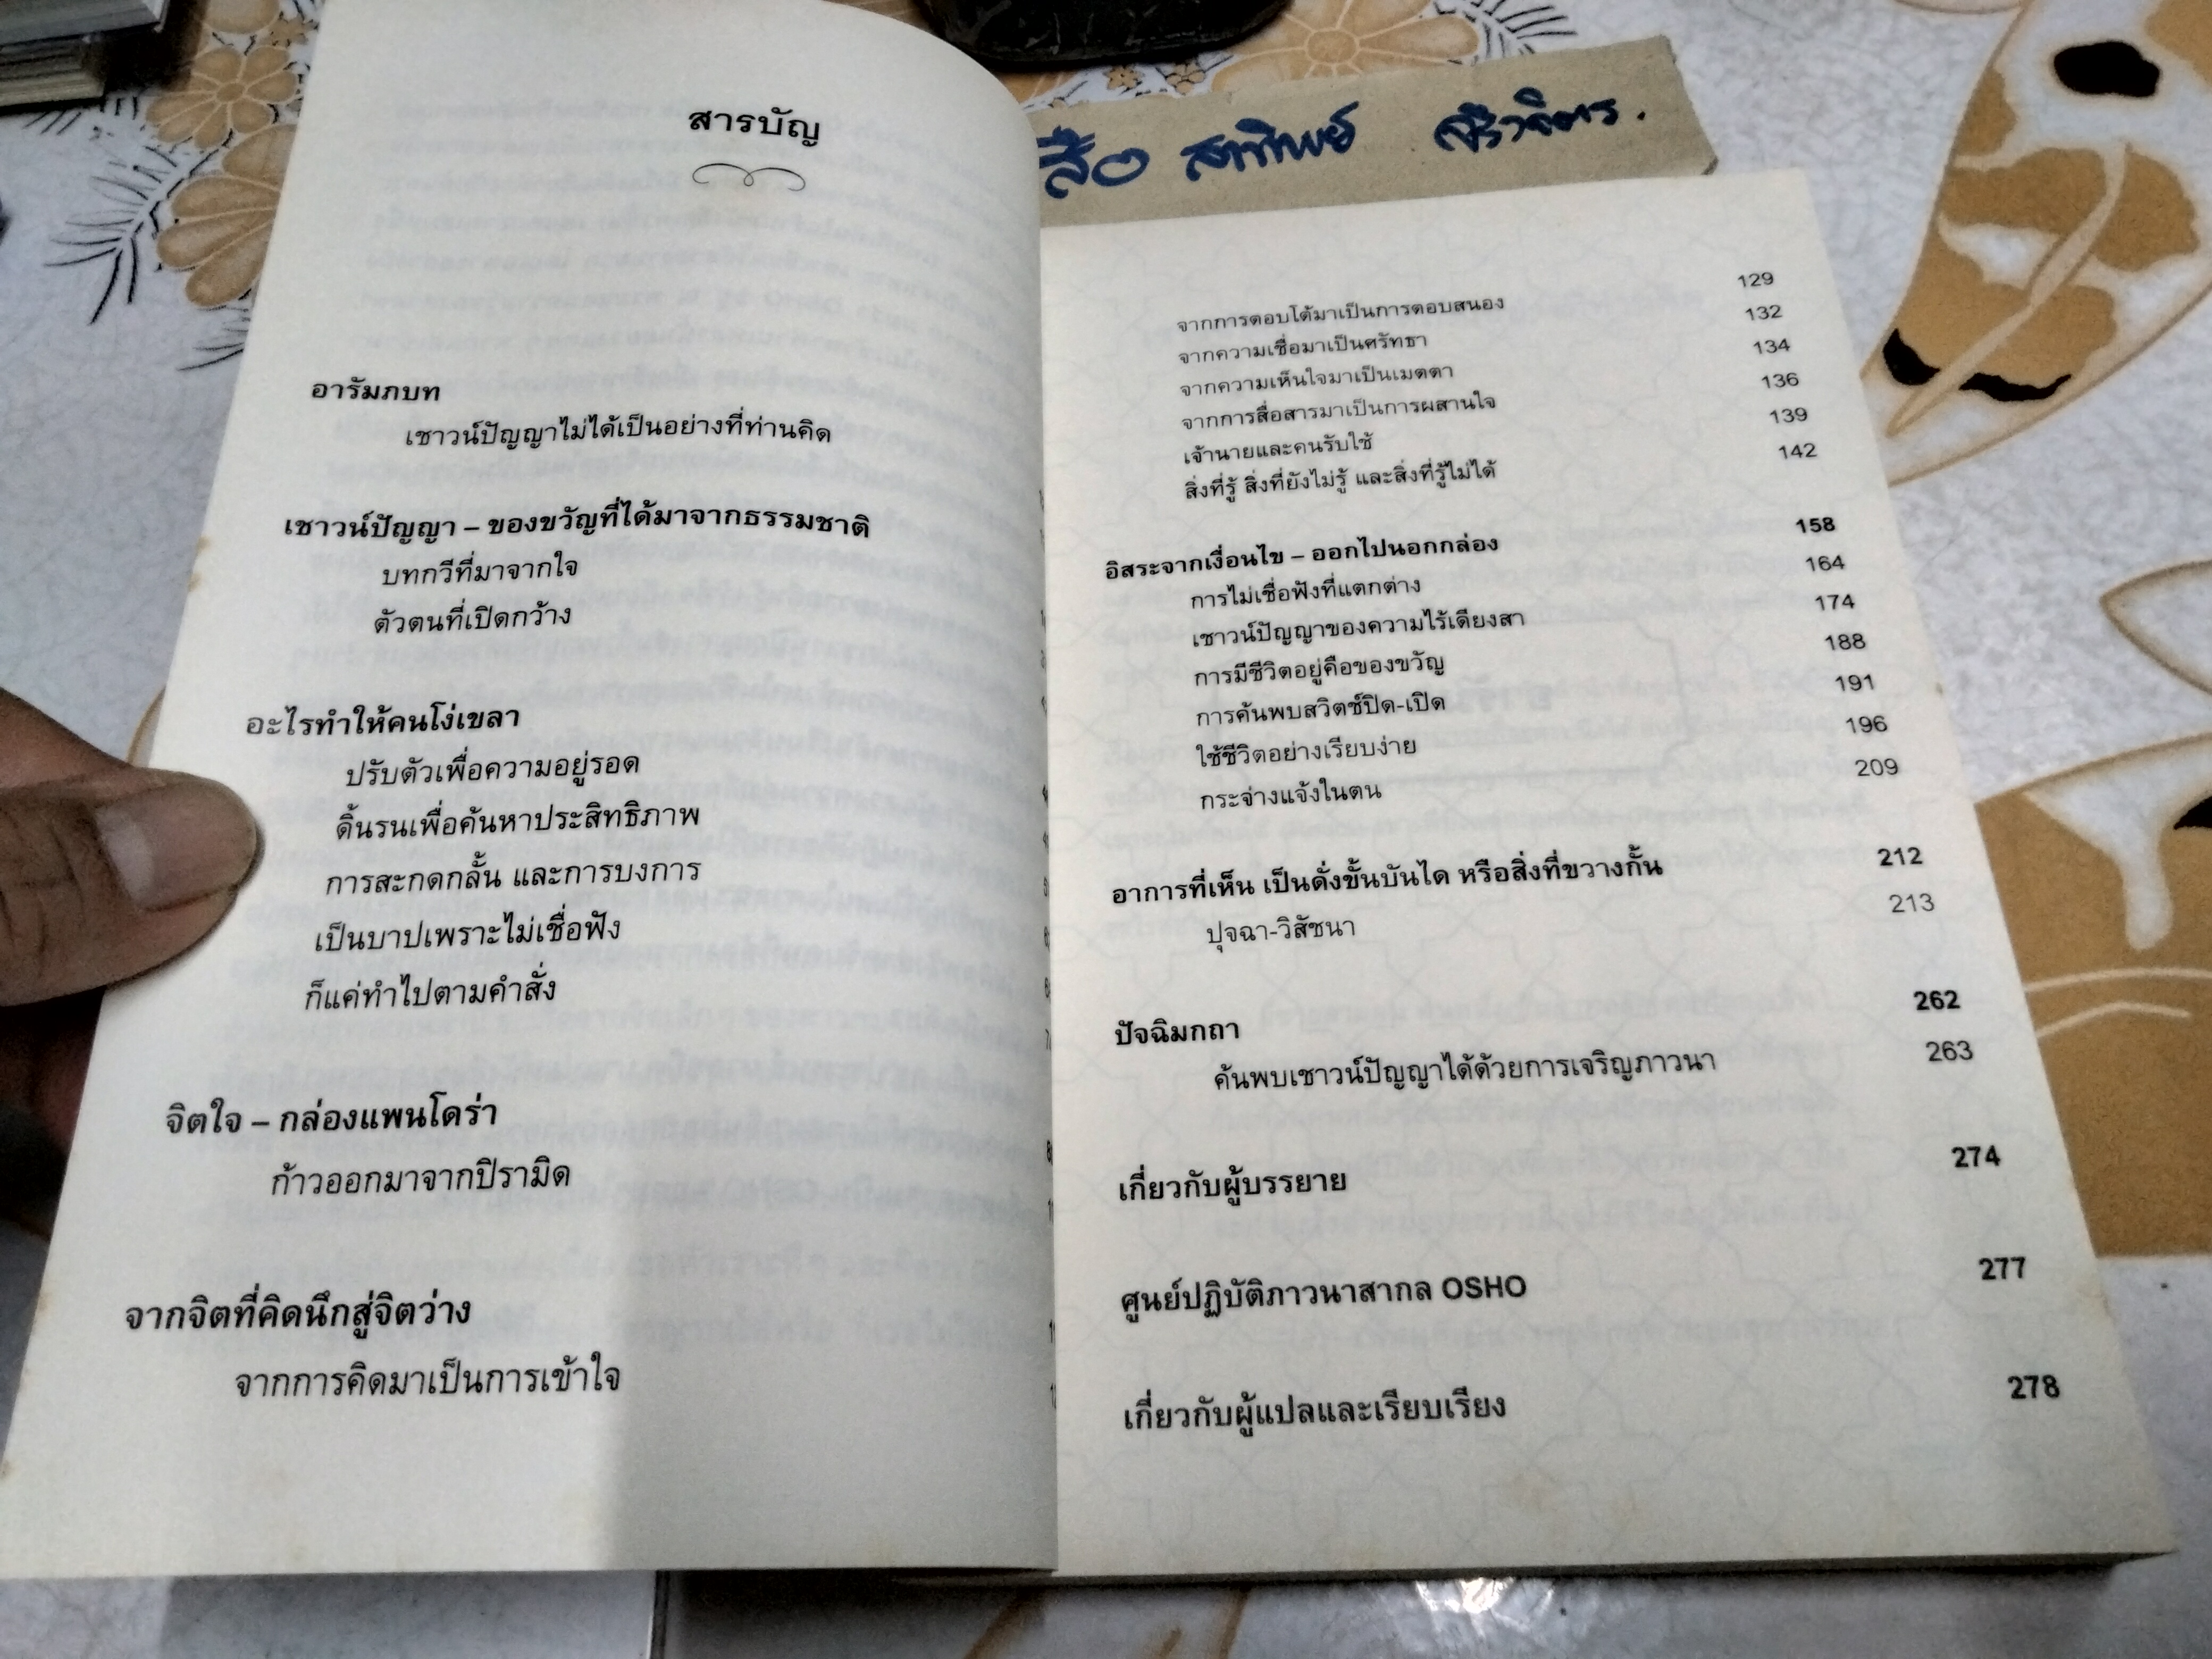 สารบัญ
อารัมภบท
เชาวน์ปัญญาไม่ได้เป็นอย่างที่ท่านคิด
เชาวน์ปัญญา – ของขวัญที่ได้มาจากธรรมชาติ
บทกวีที่มาจากใจ
ตัวตนที่เปิดกว้าง
อะไรทำให้คนโง่เขลา
ปรับตัวเพื่อความอยู่รอด
ดิ้นรนเพื่อค้นหาประสิทธิภาพ
การสะกดกลั้น และการบงการ
เป็นบาปเพราะไม่เชื่อฟัง
ก็แค่ทำไปตามคำสั่ง
จิตใจ – กล่องแพนโดร่า
ก้าวออกมาจากปิรามิด
จากจิตที่คิดนึกสู่จิตว่าง
จากการคิดมาเป็นการเข้าใจ
สือ สาทิพย์
จากการตอบโต้มาเป็นการตอบสนอง 129
จากความเชื่อมาเป็นศรัทธา 132
จากความเห็นใจมาเป็นเมตตา 134
จากการสื่อสารมาเป็นการผสานใจ 136
เจ้านายและคนรับใช้ 139
สิ่งที่รู้ สิ่งที่ยังไม่รู้ และสิ่งที่รู้ไม่ได้ 142
อิสระจากเงื่อนไข – ออกไปนอกกล่อง 158
การไม่เชื่อฟังที่แตกต่าง 164
เชาวน์ปัญญาของความไร้เดียงสา 174
การมีชีวิตอยู่คือของขวัญ 188
การค้นพบสวิตช์ปิด-เปิด 191
ใช้ชีวิตอย่างเรียบง่าย 196
กระจ่างแจ้งในตน 209
อาการที่เห็น เป็นดั่งขั้นบันได หรือสิ่งที่ขวางกั้น 212
ปุจฉา-วิสัชนา 213
ปัจฉิมกถา 262
ค้นพบเชาวน์ปัญญาได้ด้วยการเจริญภาวนา 263
เกี่ยวกับผู้บรรยาย 274
ศูนย์ปฏิบัติภาวนาสากล OSHO 277
เกี่ยวกับผู้แปลและเรียบเรียง 278